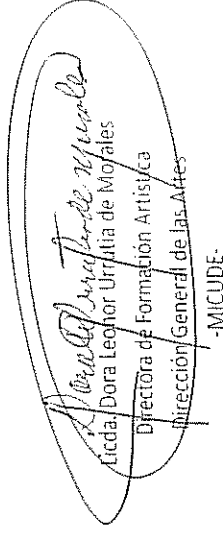 Licda. Dora Leonor Urrutia de Morales
Directora de Formación Artística
Dirección General de las Artes
-MICUDE-